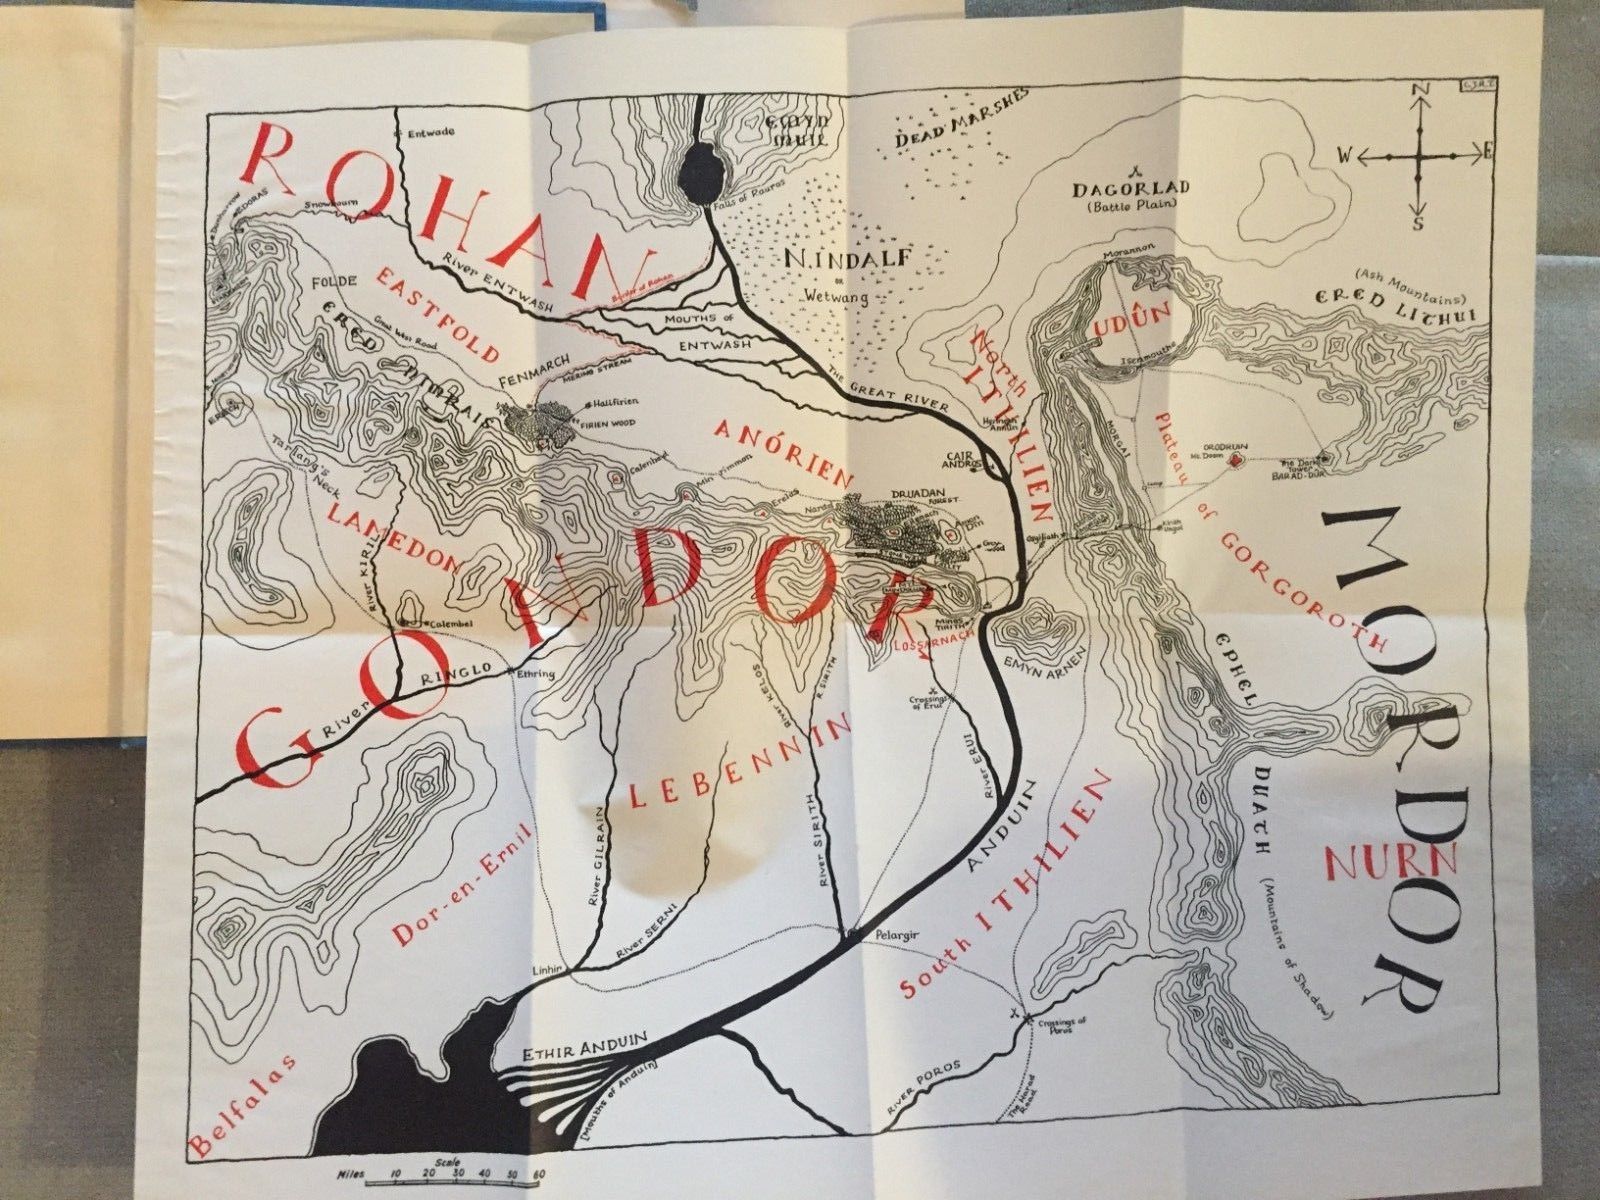 ROHAN
Entwade
EMYN
MUIL
DEAD MARSHES
CJRT
N
W
E
S
DAGORLAD
(Battle Plain)
Dunharrow
EDORAS
Snowbourn
Falls of Rauros
FOLDE
EASTFOLD
River ENTWASH
Border of Rohan
MOUTHS of
ENTWASH
NINDALF
or
Wetwang
Morannon
UDÛN
Isenmouthe
(Ash Mountains)
ERED LITHUI
ERED NIMRAIS
Great West Road
FENMARCH
MERING STREAM
Halifirien
FIRIEN WOOD
THE GREAT RIVER
North ITHILIEN
Henneth
Annûn
ERECH
Tarlang's
Neck
LAMEDON
RIVER KIRIL
Calenhad
Min Rimmon
Erelas
Nardol
ANÓRIEN
CAIR
ANDROS
DRUADAN
FOREST
Amon
Dîn
Grey-
wood
Osgiliath
MORGAI
Plateau of GORGOROTH
ORODRUIN
Mt. Doom
The Dark
Tower
BARAD-DÛR
Kirith
Ungol
MORDOR
GONDOR
Minas
TIRITH
LOSSARNACH
EMYN ARNEN
Calembel
River RINGLO
Ethring
River KELOS
R. SIRITH
Crossings
of Erui
River ERUI
EPHEL DUATH
(Mountains of Shadow)
LEBENNIN
NURN
ANDUIN
South ITHILIEN
Dor-en-Ernil
River GILRAIN
River SERNI
River SIRITH
Pelargir
Linhir
Crossings of
Poros
ETHIR ANDUIN
(Mouths of Anduin)
RIVER POROS
The Harad
Road
Belfalas
Scale
Miles 10 20 30 40 50 60